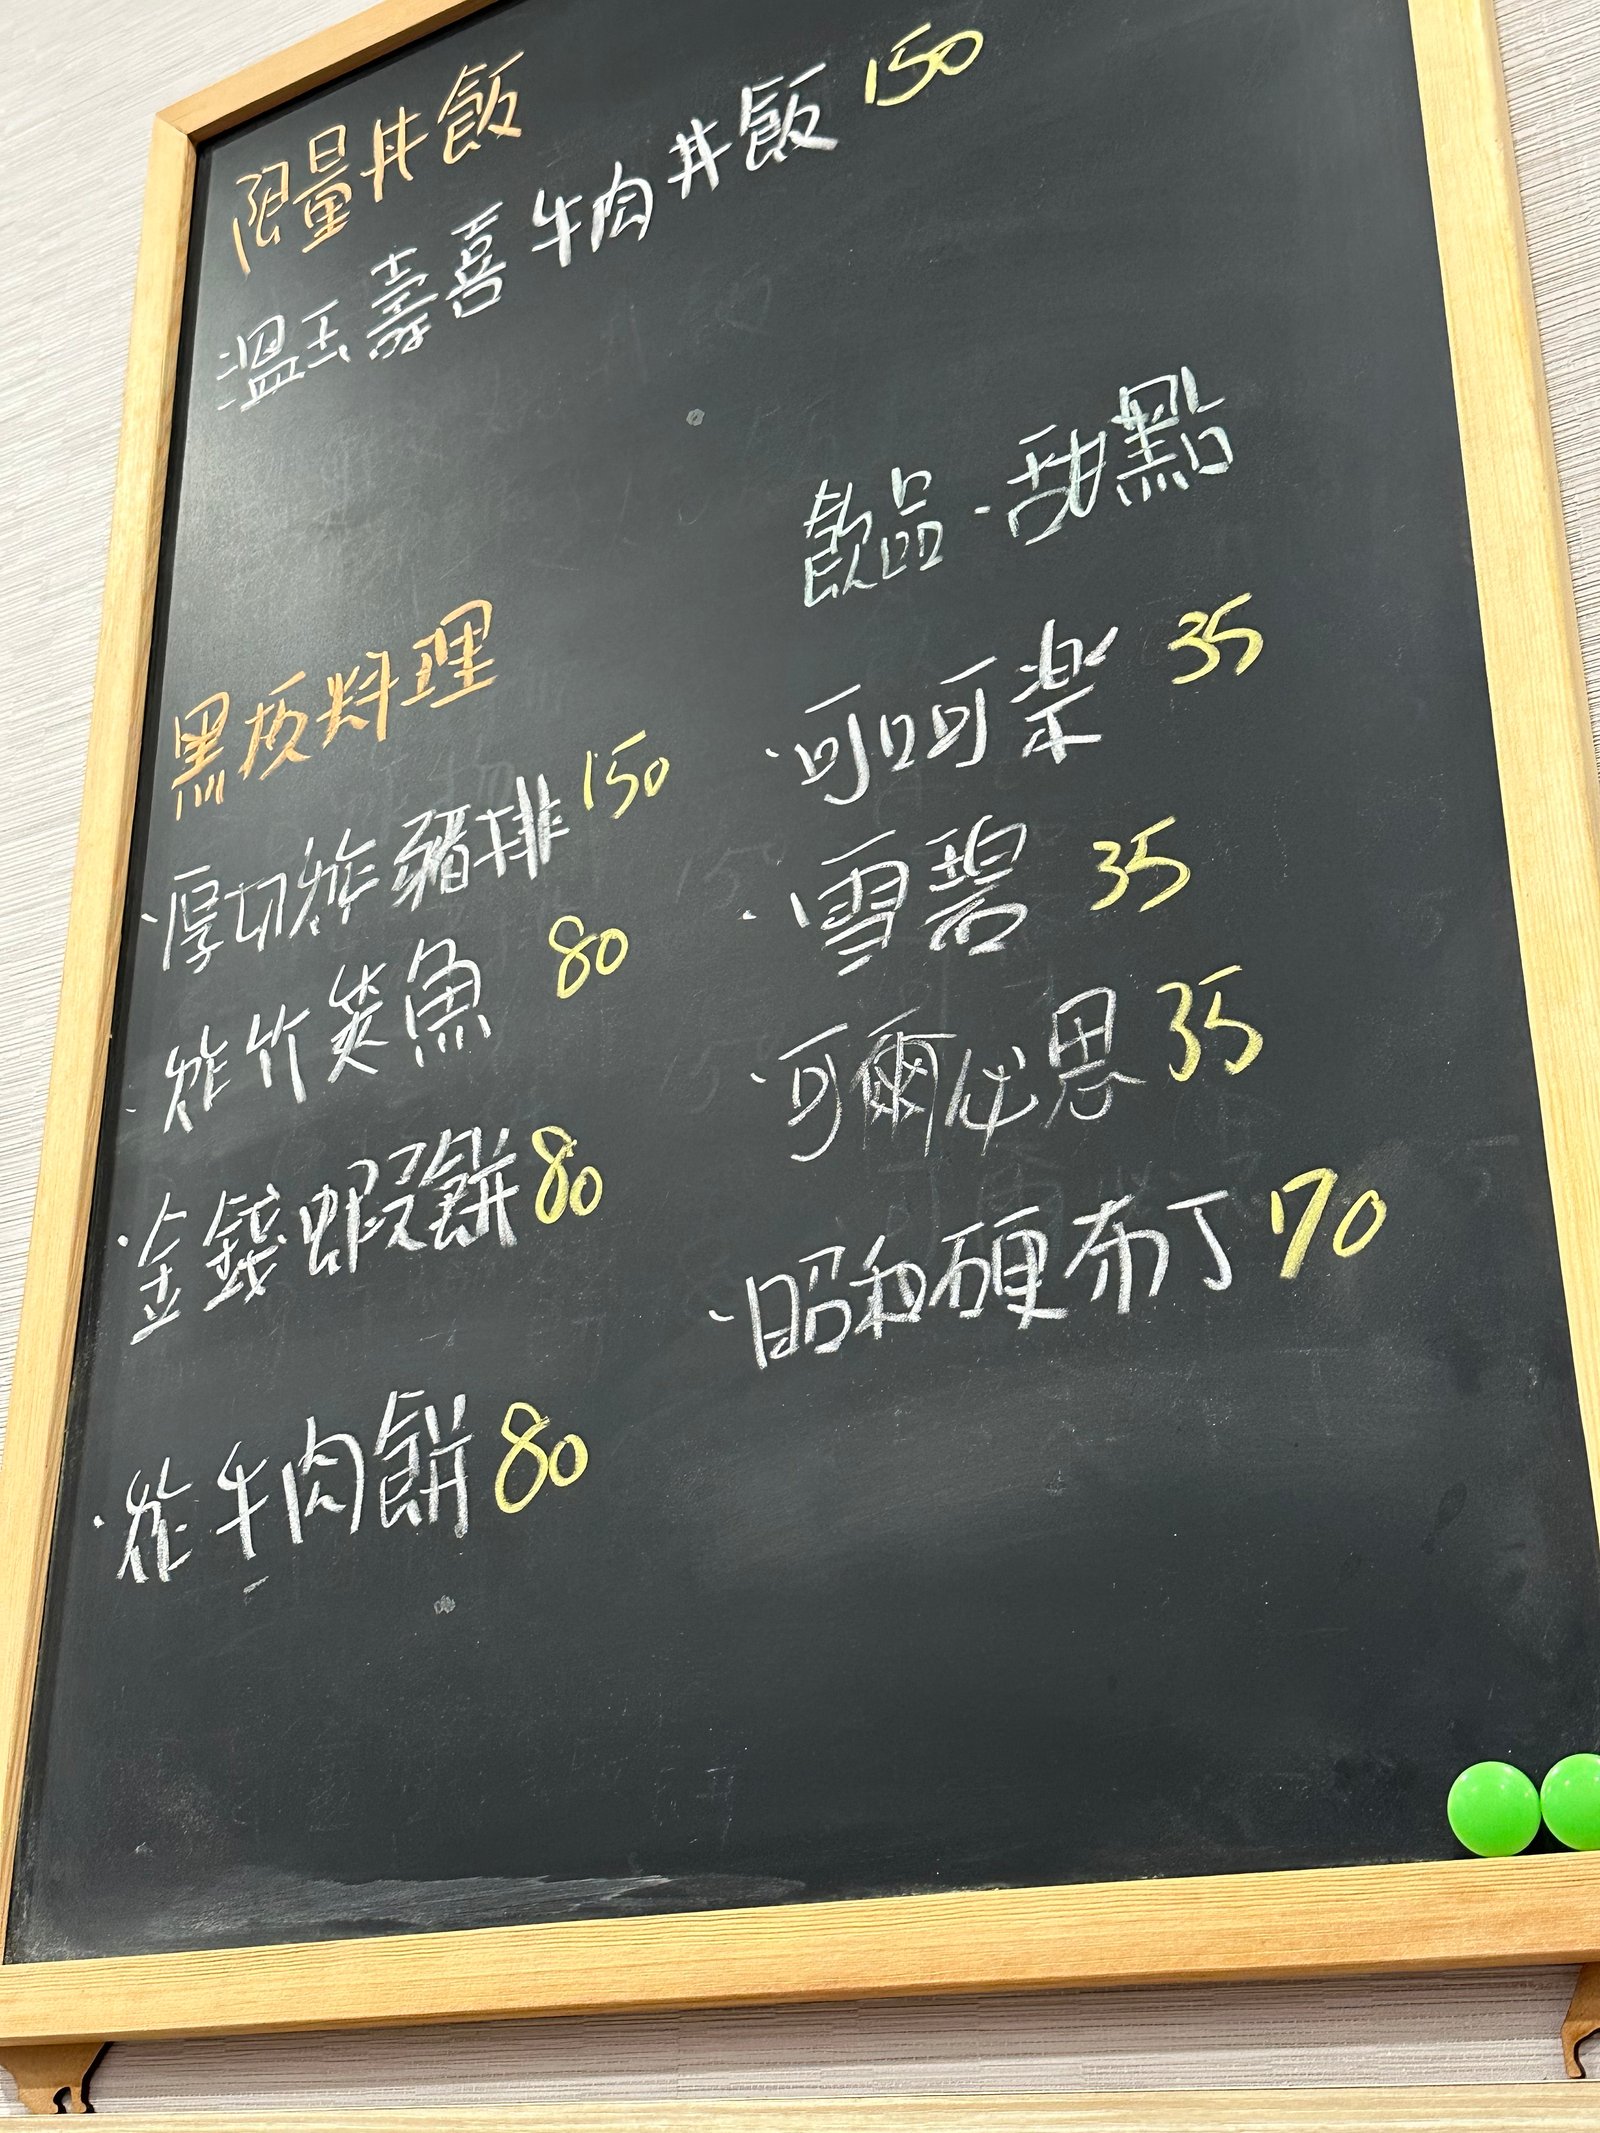 限量丼飯
溫玉壽喜牛肉丼飯 150
黑板料理
·厚切炸豬排 150
·炸竹筴魚 80
·金錢蝦餅 80
·炸牛肉餅 80
飲品·甜點
·可口可樂 35
·雪碧 35
·可爾必思 35
·昭和硬布丁 70